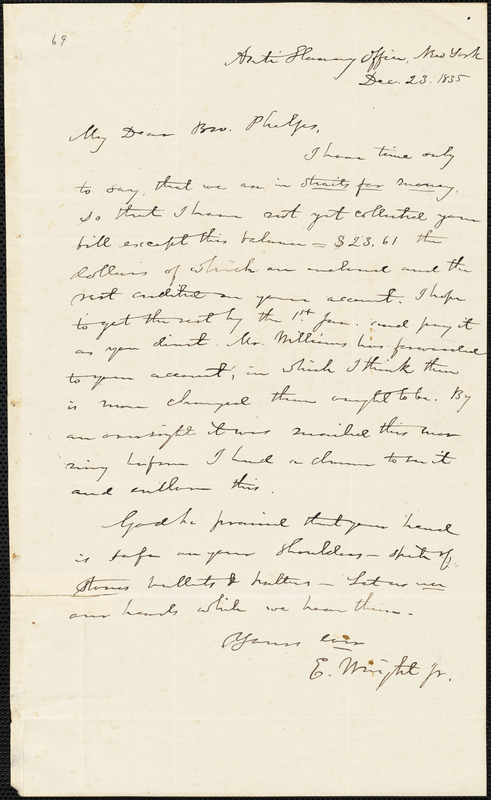 69
Anti Slavery Office, New York
Dec. 23. 1835
My Dear Bro. Phelps,
I have time only
to say, that we are in straits for money,
so that I have not yet collected your
bill except this balance = $23.61 the
dollars of which are inclosed and the
rest credited on your account. I hope
to get the rest by the 1st Jan. and pay it
as you direct. Mr. Williams has forwarded
to your account, in which I think there
is more charged than ought to be. By
an oversight it was mailed this mor
ning before I had a chance to see it
and enclose this.
God be praised that your head
is safe on your shoulders – spite of
stones bullets & halters – Let us use
our heads while we have them.
Yours ever
E. Wright Jr.